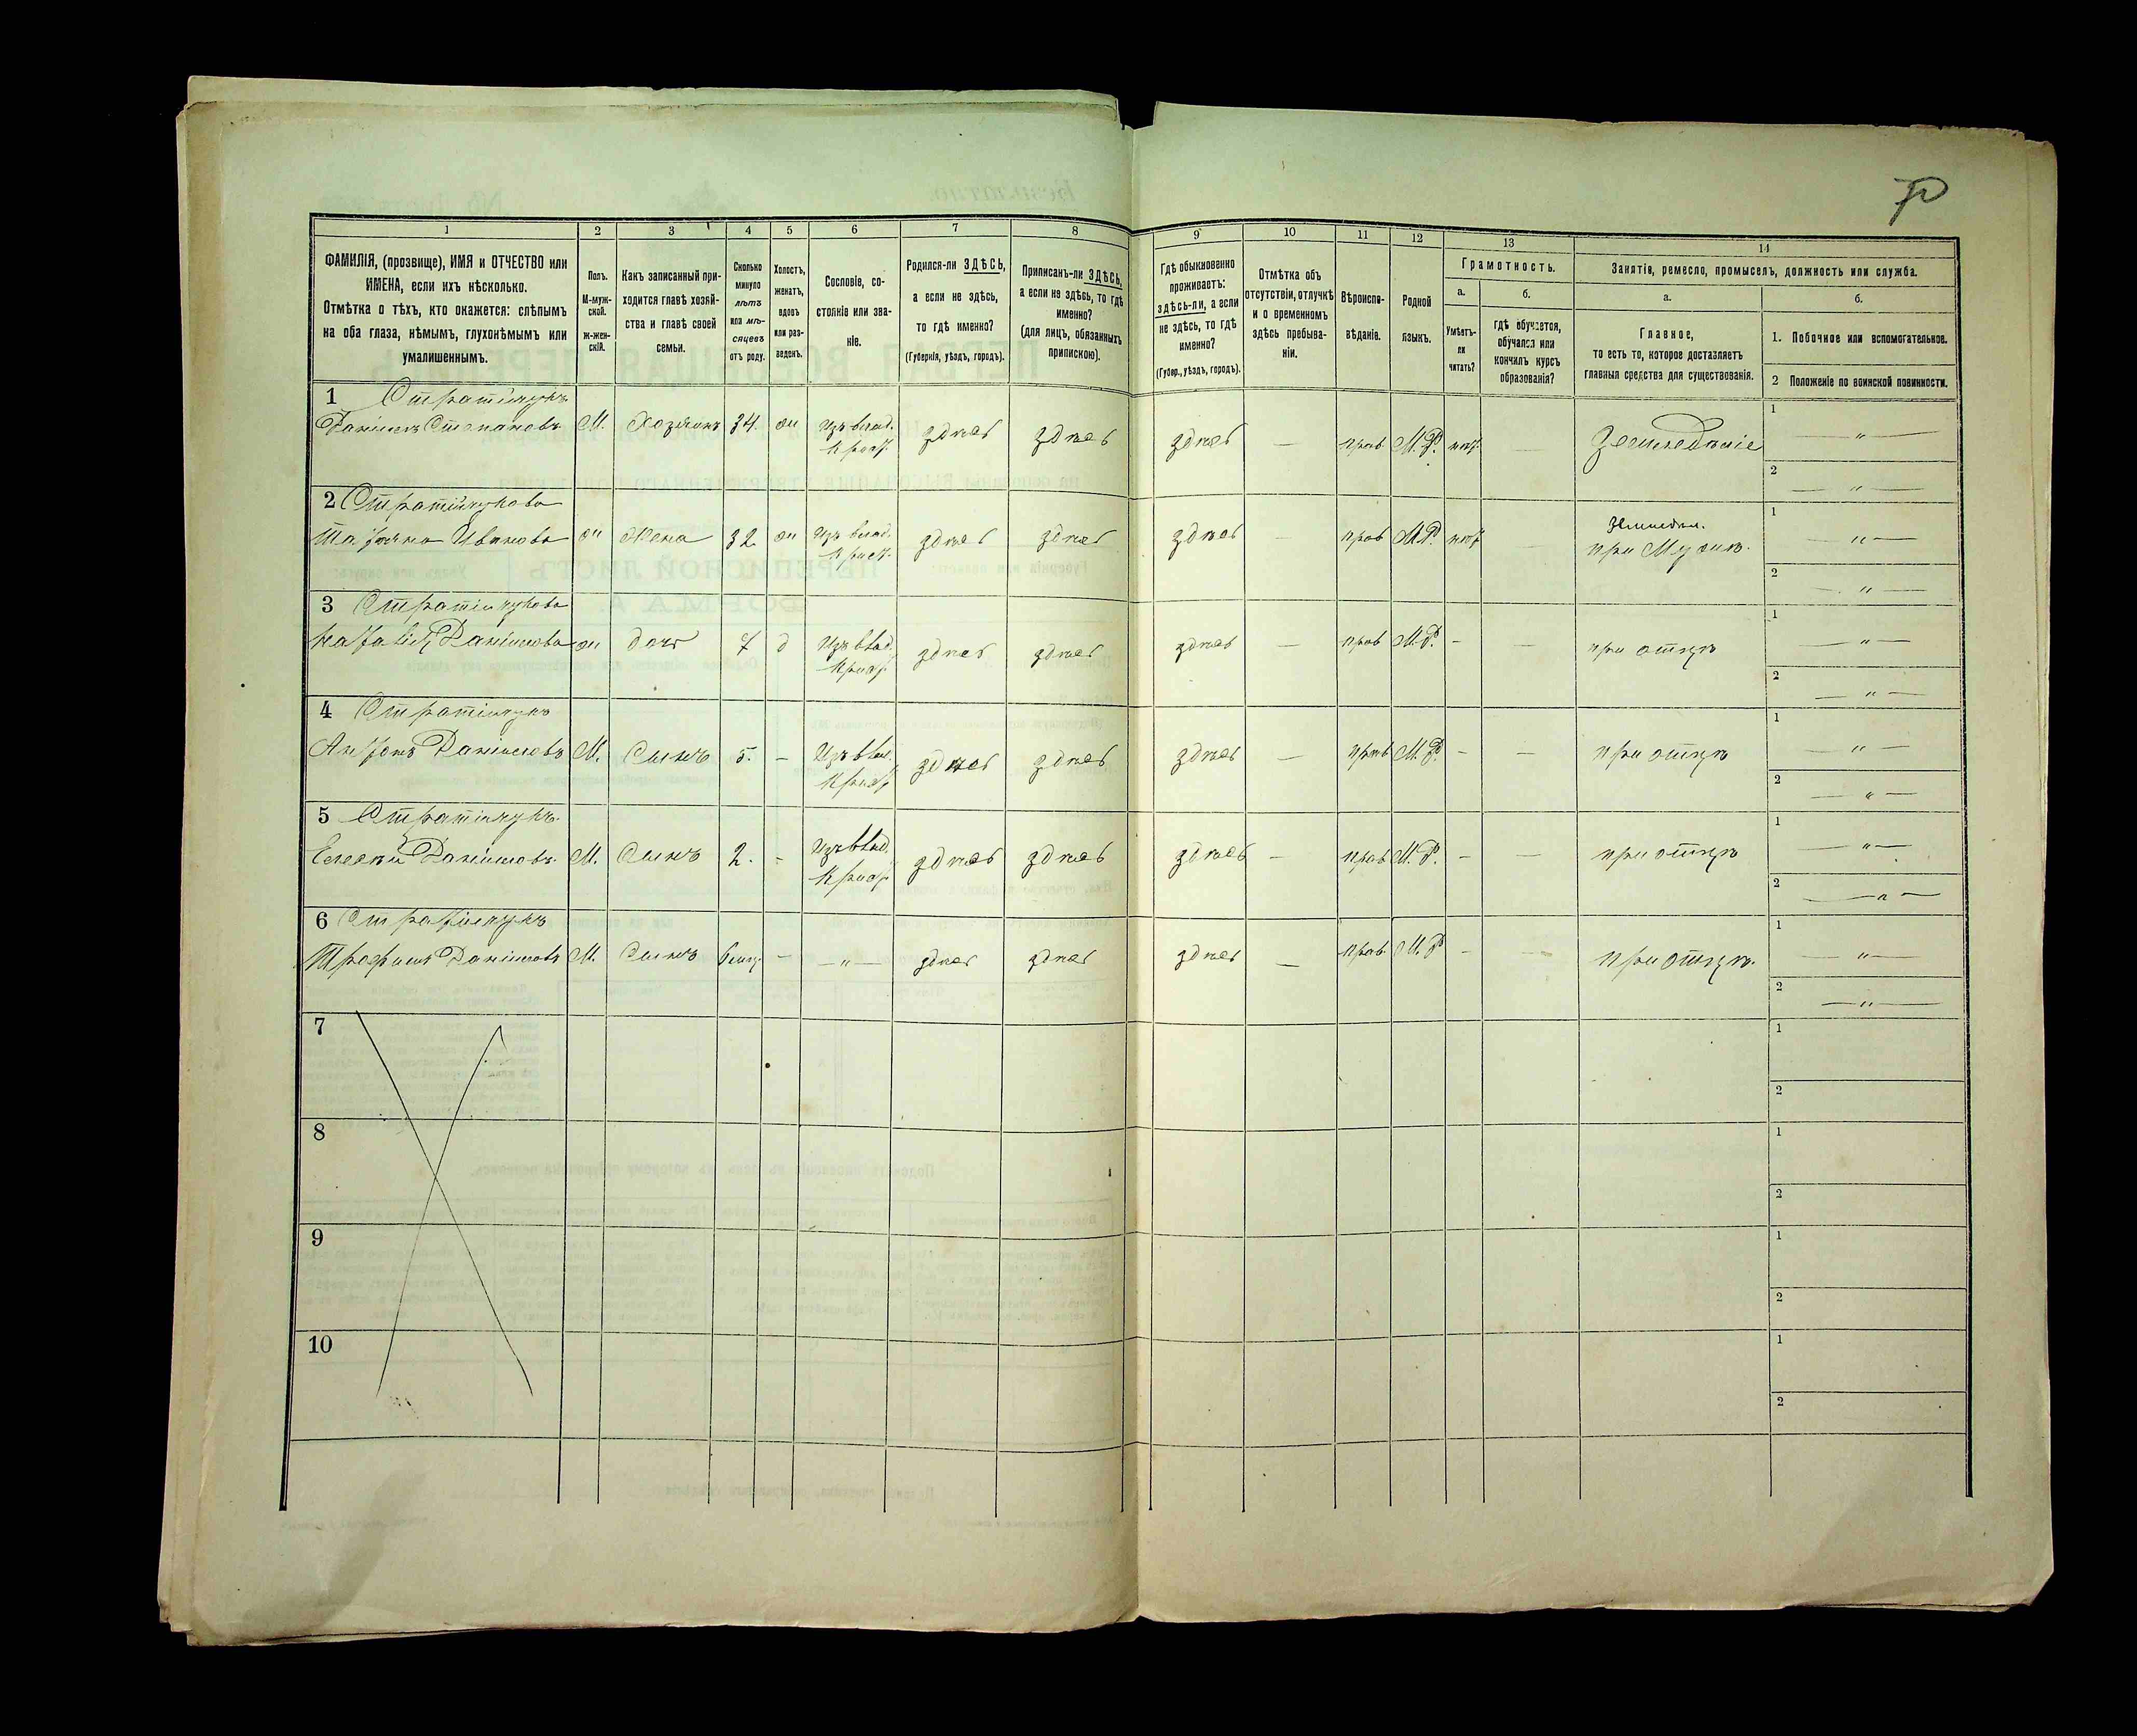 70
1
2
3
4
5
6
7
8
9
10
11
12
13
14
ФАМИЛІЯ, (прозвище), ИМЯ и ОТЧЕСТВО или
ИМЕНА, если ихъ нѣсколько.
Отмѣтка о тѣхъ, кто окажется: слѣпымъ
на оба глаза, нѣмымъ, глухонѣмымъ или
умалишеннымъ.
Полъ.
М-муж-
ской.
ж-жен-
скій.
Какъ записанный при-
ходится главѣ хозяй-
ства и главѣ своей
семьи.
Сколько
минуло
лѣтъ
или мѣ-
сяцевъ
отъ роду.
Холостъ,
женатъ,
вдовъ
или раз-
веденъ.
Сословіе, со-
стояніе или зва-
ніе.
Родился-ли ЗДѢСЬ,
а если не здѣсь,
то гдѣ именно?
(Губернія, уѣздъ, городъ).
Приписанъ-ли ЗДѢСЬ,
а если не здѣсь, то гдѣ
именно?
(для лицъ, обязанныхъ
припискою).
Гдѣ обыкновенно
проживаетъ:
здѣсь-ли, а если
не здѣсь, то гдѣ
именно?
(Губер., уѣздъ, городъ).
Отмѣтка объ
отсутствіи, отлучкѣ
и о временномъ
здѣсь пребыва-
ніи.
Вѣроиспо-
вѣданіе.
Родной
языкъ.
Грамотность.
а.
Умѣетъ-
ли
читать?
б.
гдѣ обучается,
обучался или
кончилъ курсъ
образованія?
Занятія, ремесло, промыселъ, должность или служба.
а.
Главное,
то есть то, которое доставляетъ
главныя средства для существованія.
б.
1. Побочное или вспомогательное.
2 Положеніе по воинской повинности.
1 Стратійчукъ
Даніилъ Степановъ М. Хозяинъ 34. ж Изъ влад. крест. здѣсь здѣсь здѣсь — прав М.Р. нѣт. — Земледѣліе
1 — „ —
2 — „ —
2 Стратійчукова
Татіяна Иванова ж Жена 32 ж Изъ влад. крест. здѣсь здѣсь здѣсь — прав М.Р. нѣт Земледѣл. при Мужѣ.
1 — „ —
2 — „ —
3 Стратійчукова
Наталія Даніилова ж дочь 7 д Изъ влад. крест. здѣсь здѣсь здѣсь — прав М.Р. — — при отцѣ
1 — „ —
2 — „ —
4 Стратійчукъ
Антонъ Даніиловъ М. Сынъ 5. — Изъ влад. крест. здѣсь здѣсь здѣсь — прав М.Р. — — при отцѣ
1 — „ —
2 — „ —
5 Стратійчукъ
Даніиловъ. М. Сынъ 2. — Изъ влад. крест. здѣсь здѣсь здѣсь — прав М.Р. — — при отцѣ
1 — „ —
2 — „ —
6 Стратійчукъ
Трофимъ Даніиловъ М. Сынъ — — „ — здѣсь здѣсь здѣсь — прав. М.Р. — — при отцѣ.
1 — „ —
2 — „ —
7
1
2
8
1
2
9
1
2
10
1
2